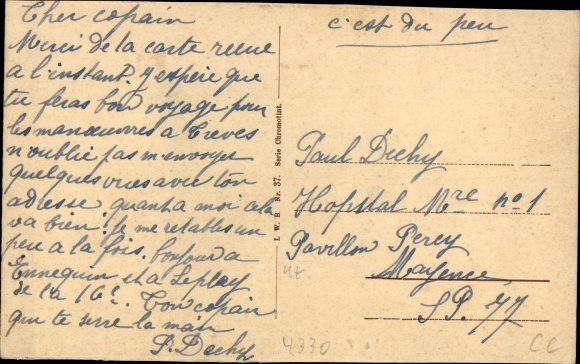 Cher copain
Merci de la carte reçue
a l'instant. J'espère que
tu feras bon voyage pour
les manœuvres a Treves
n'oublie pas m'envoyer
quelques vues avec ton
adresse quant a moi cela
va bien. Je me retablis un
peu a la fois. bonjour a
Ennequin et a Leplay
de la 16e. Ton copain
que te serre la main
P. Dechy
L. W. B Nr. 37. Serie Chromotint.
c'est du peu
Paul Dechy
Hopital Mre no 1
Pavillon Percy
Mayence
SP. 77
4330
CC